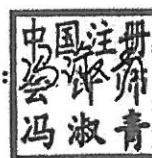 中国注册
会计师
冯淑青